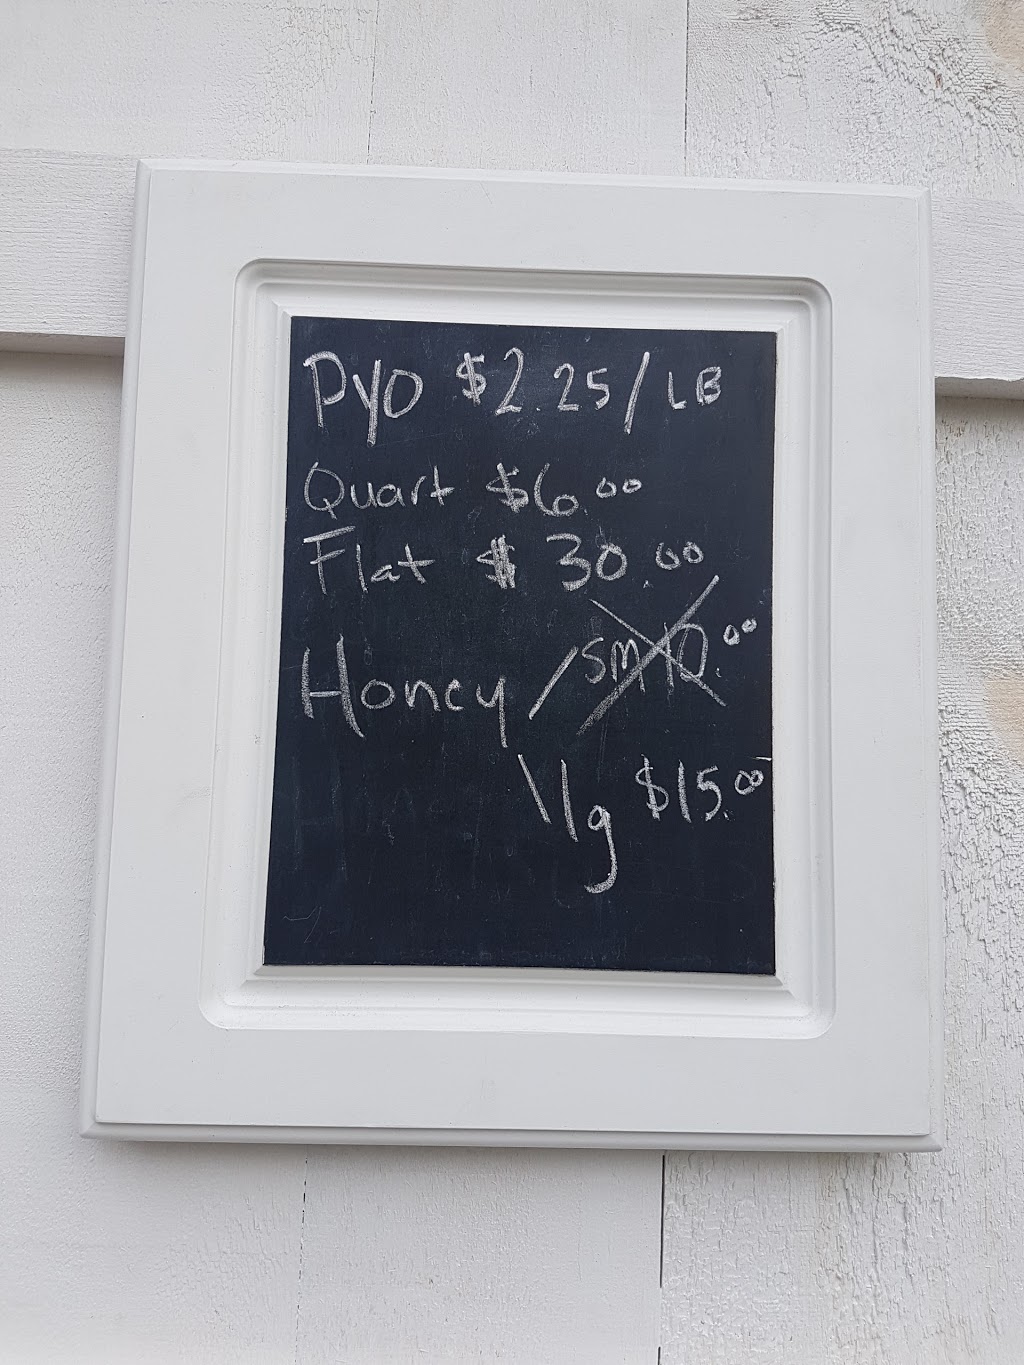 PYO $2.25/LB
Quart $6.00
Flat $30.00
Honey / SM 10.00
\ lg $15.00